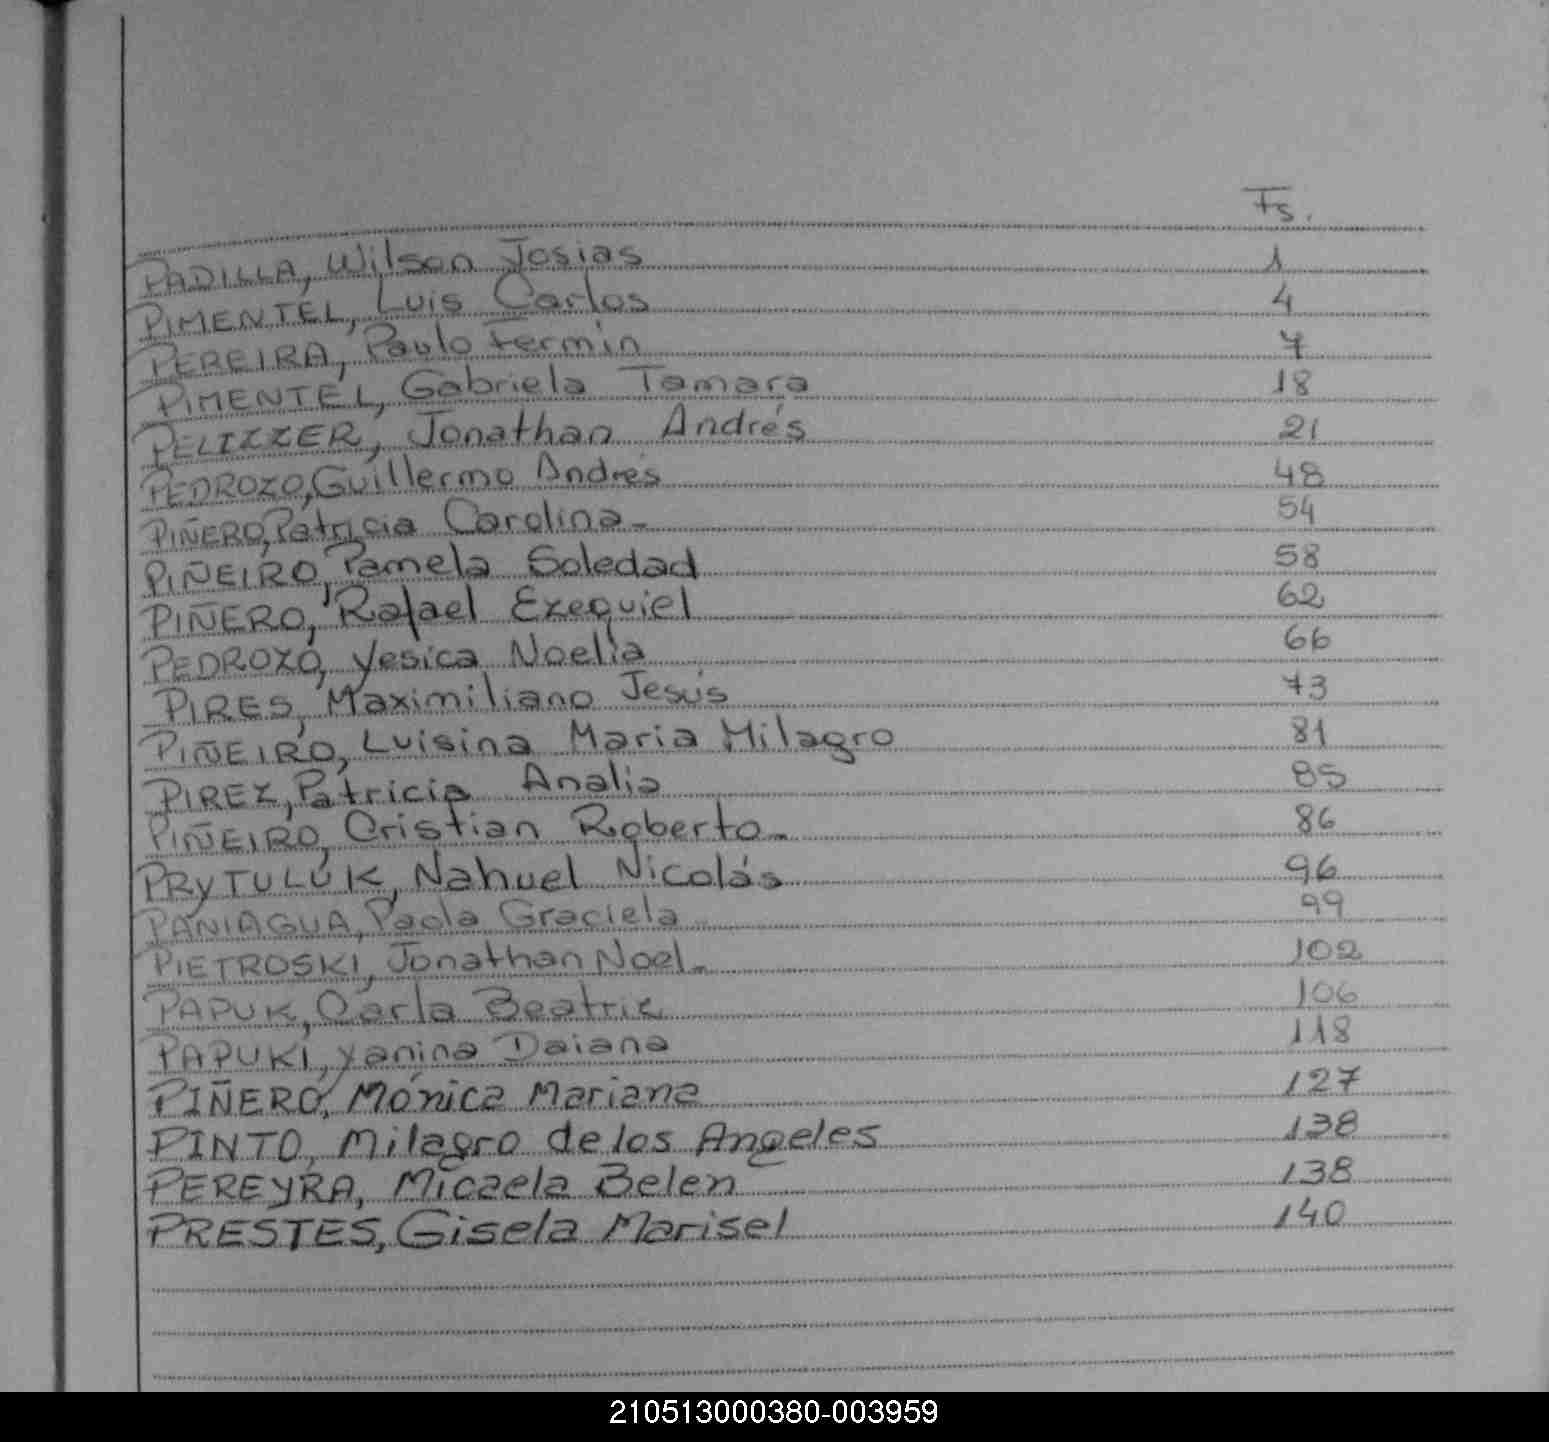 Fs.
PADILLA, Wilson Josias 1
PIMENTEL, Luis Carlos 4
PEREIRA, Paulo Fermin 7
PIMENTEL, Gabriela Tamara 18
PELIZZER, Jonathan Andrés 21
PEDROZO, Guillermo Andrés 48
PIÑERO, Patricia Carolina- 54
PIÑEIRO, Pamela Soledad 58
PIÑERO, Rafael Exequiel 62
PEDROZO, Yesica Noelia 66
PIRES, Maximiliano Jesús 73
PIÑEIRO, Luisina Maria Milagro 81
PIREZ, Patricia Analia 85
PIÑEIRO, Cristian Roberto- 86
PRYTULUK, Nahuel Nicolás 96
PANIAGUA, Paola Graciela 99
PIETROSKI, Jonathan Noel- 102
PAPUK, Carla Beatriz 106
PAPUKI, Yanina Daiana 118
PIÑERO, Mónica Mariana 127
PINTO, Milagro de los Angeles 138
PEREYRA, Micaela Belen 138
PRESTES, Gisela Marisel 140
210513000380-003959